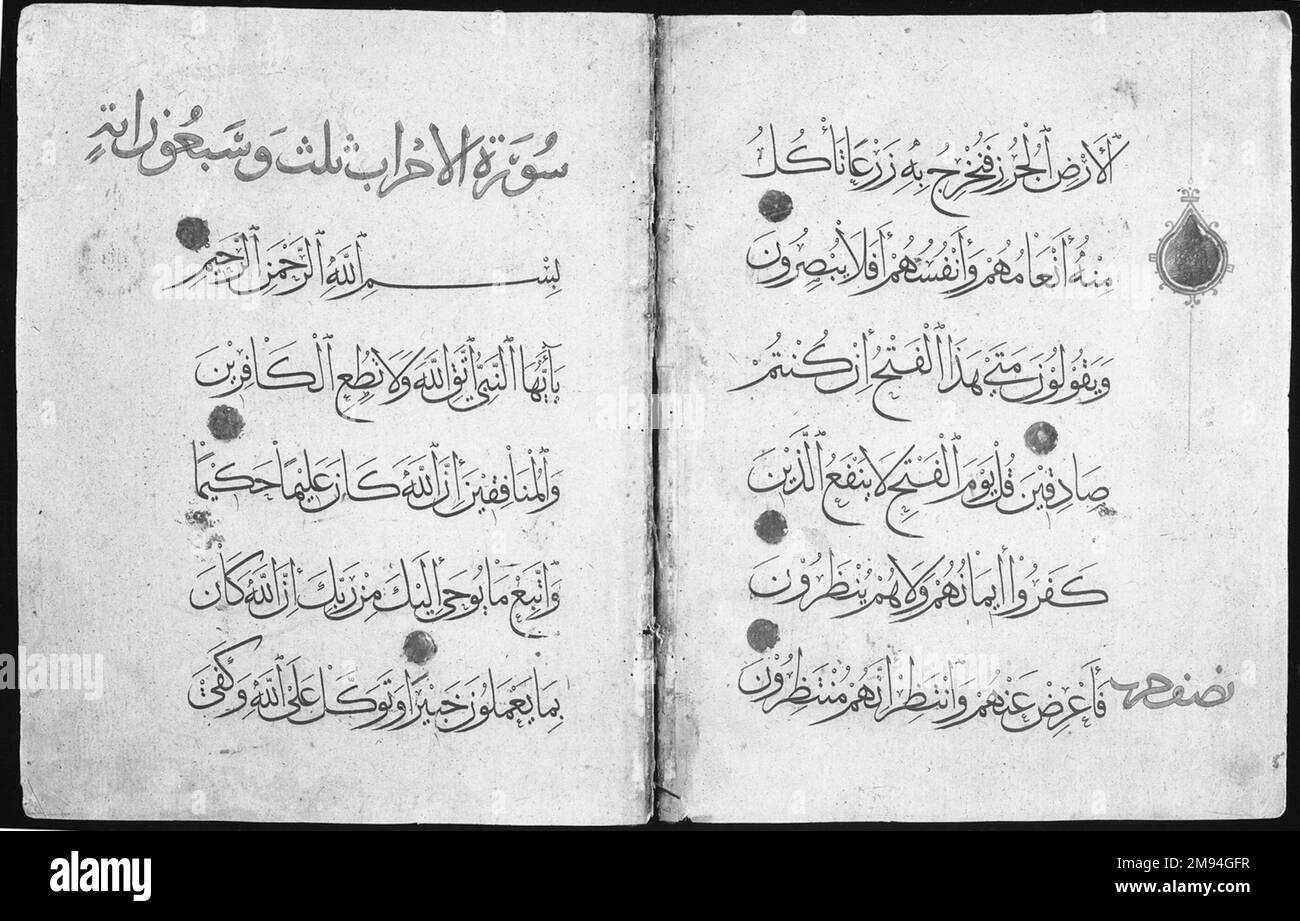 ٱلْأَرْضِ ٱلْجُرُزِ فَنُخْرِجُ بِهِ زَرْعًا تَأْكُلُ
مِنْهُ أَنْعَامُهُمْ وَأَنْفُسُهُمْ أَفَلَا يُبْصِرُونَ
وَيَقُولُونَ مَتَى هَذَا ٱلْفَتْحُ إِنْ كُنْتُمْ
صَادِقِينَ قُلْ يَوْمَ ٱلْفَتْحِ لَا يَنْفَعُ ٱلَّذِينَ
كَفَرُوا إِيمَانُهُمْ وَلَا هُمْ يُنْظَرُونَ
فَأَعْرِضْ عَنْهُمْ وَٱنْتَظِرْ إِنَّهُمْ مُنْتَظِرُونَ
نصف حزب
سُورَةُ الاحزاب ثلث وَسَبْعُونَ ايَةٍ
بِسْمِ ٱللَّهِ ٱلرَّحْمَنِ ٱلرَّحِيمِ
يَأَيُّهَا ٱلنَّبِيُّ ٱتَّقِ ٱللَّهَ وَلَا تُطِعِ ٱلْكَافِرِينَ
وَٱلْمُنَافِقِينَ إِنَّ ٱللَّهَ كَانَ عَلِيمًا حَكِيمًا
وَٱتَّبِعْ مَا يُوحَى إِلَيْكَ مِنْ رَبِّكَ إِنَّ ٱللَّهَ كَانَ
بِمَا يَعْمَلُونَ خَبِيرًا وَتَوَكَّلْ عَلَى ٱللَّهِ وَكَفَى
alamy
Image ID: 2M94GFR
www.alamy.com